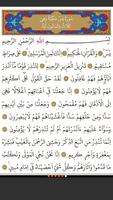 سورة يس مكية وهي
ثلاث وثمانون آية
بِسْمِ اللَّهِ الرَّحْمَٰنِ الرَّحِيمِ
يسٓ وَالْقُرْآنِ الْحَكِيمِ إِنَّكَ لَمِنَ الْمُرْسَلِينَ عَلَىٰ صِرَاطٍ
مُسْتَقِيمٍ تَنْزِيلَ الْعَزِيزِ الرَّحِيمِ لِتُنْذِرَ قَوْمًا مَا أُنْذِرَ
آبَاؤُهُمْ فَهُمْ غَافِلُونَ لَقَدْ حَقَّ الْقَوْلُ عَلَىٰ أَكْثَرِهِمْ
فَهُمْ لَا يُؤْمِنُونَ إِنَّا جَعَلْنَا فِي أَعْنَاقِهِمْ أَغْلَالًا فَهِيَ إِلَى
الْأَذْقَانِ فَهُمْ مُقْمَحُونَ وَجَعَلْنَا مِنْ بَيْنِ أَيْدِيهِمْ سَدًّا
وَمِنْ خَلْفِهِمْ سَدًّا فَأَغْشَيْنَاهُمْ فَهُمْ لَا يُبْصِرُونَ وَسَوَاءٌ
عَلَيْهِمْ أَأَنْذَرْتَهُمْ أَمْ لَمْ تُنْذِرْهُمْ لَا يُؤْمِنُونَ إِنَّمَا تُنْذِرُ
مَنِ اتَّبَعَ الذِّكْرَ وَخَشِيَ الرَّحْمَٰنَ بِالْغَيْبِ فَبَشِّرْهُ بِمَغْفِرَةٍ
وَأَجْرٍ كَرِيمٍ إِنَّا نَحْنُ نُحْيِي الْمَوْتَىٰ وَنَكْتُبُ مَا قَدَّمُوا
وَآثَارَهُمْ وَكُلَّ شَيْءٍ أَحْصَيْنَاهُ فِي إِمَامٍ مُبِينٍ